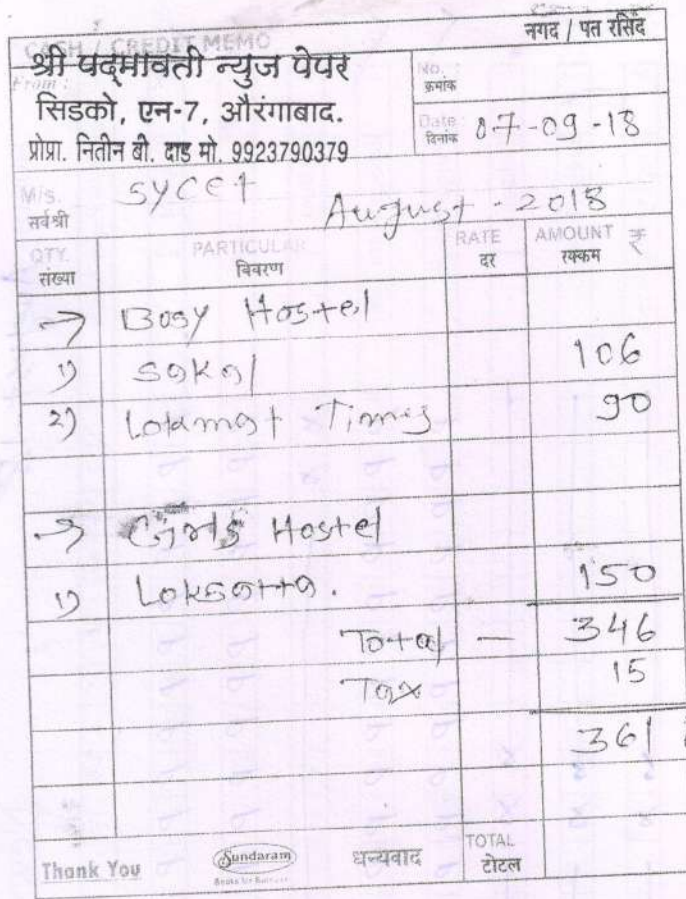 नगद / पत रसिद
CASH / CREDIT MEMO
From :
श्री पद्मावती न्युज पेपर
सिडको, एन-7, औरंगाबाद.
प्रोप्रा. नितीन बी. दाड मो. 9923790379
No. :
क्रमांक
Date :
दिनांक 07-09-18
M/s. SYCET
सर्वश्री
August - 2018
QTY. PARTICULAR RATE AMOUNT ₹
संख्या विवरण दर रक्कम
→ Bosy Hostel
1) Sakal 106
2) Lokmat Times 90
→ Girls Hostel
1) Loksatta. 150
Total — 346
Tax 15
361
Thank You Sundaram धन्यवाद TOTAL
टोटल